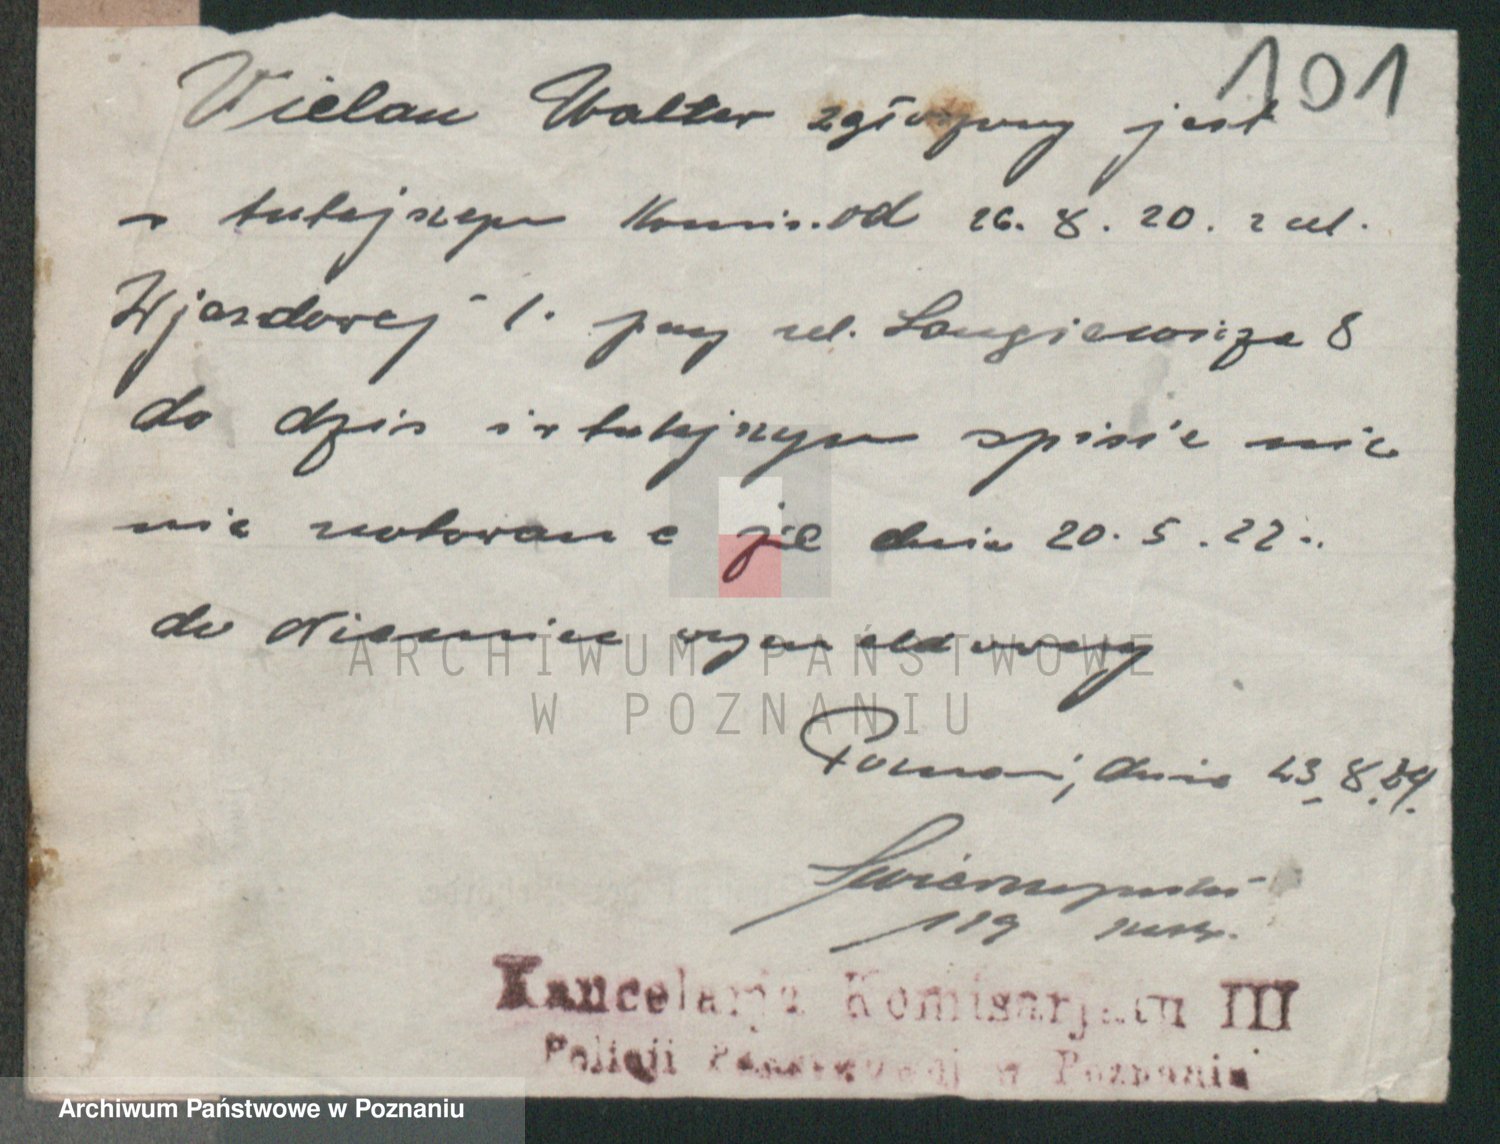 101
Wielan Walter zgłoszony jest
w tutejszym Komis. od 26.8.20. z ul.
Wjazdowej 1. przy ul. Langiewicza 8
do dziś i w tutejszym spisie nic
nie notowane je dnia 20.5.22..
do Niemiec wymeldowany
Poznań, dnia 23.8.24.
119
Kancelarja Komisarjatu III
Policji Państwowej w Poznaniu
ARCHIWUM PAŃSTWOWE
W POZNANIU
Archiwum Państwowe w Poznaniu